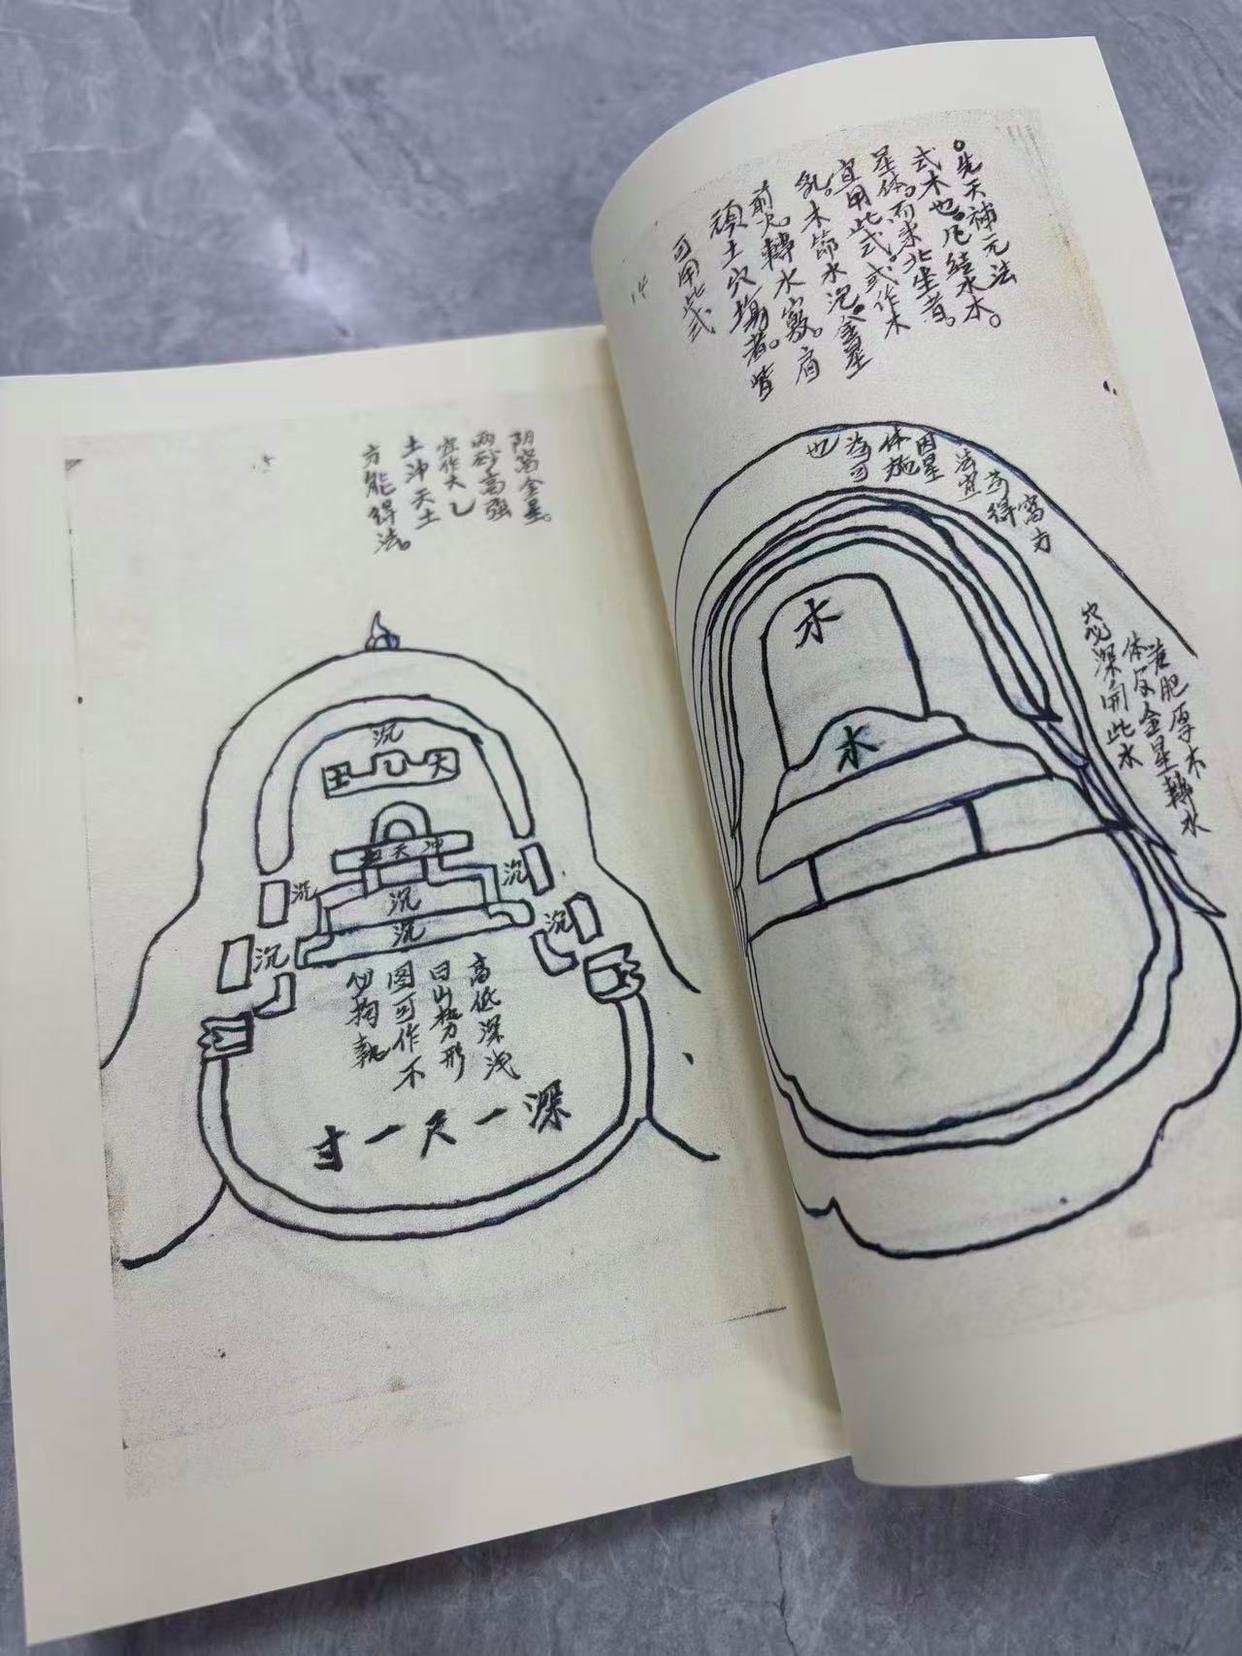 。先天補元法
式木也。凡結水木。
星体。而来北坐者。
宜用此式。或作木
乳。木節水泡。金星
剪火。轉水窩。肩
頑土穴塲者。皆
可用此式
14
窩方
苟得
法宜
因星
体施
為可
也
若肥厚木
体及金星轉水
穴必深開此水
木
木
15
阴窩金星。
兩砂高强
宜作大乚
土冲天土
方能得法。
沉
土 乚 天
土天冲
沉
沉
沉
沉
沉
沉
高低深浅
曰山势形
图可作不
必拘執
深一尺一寸